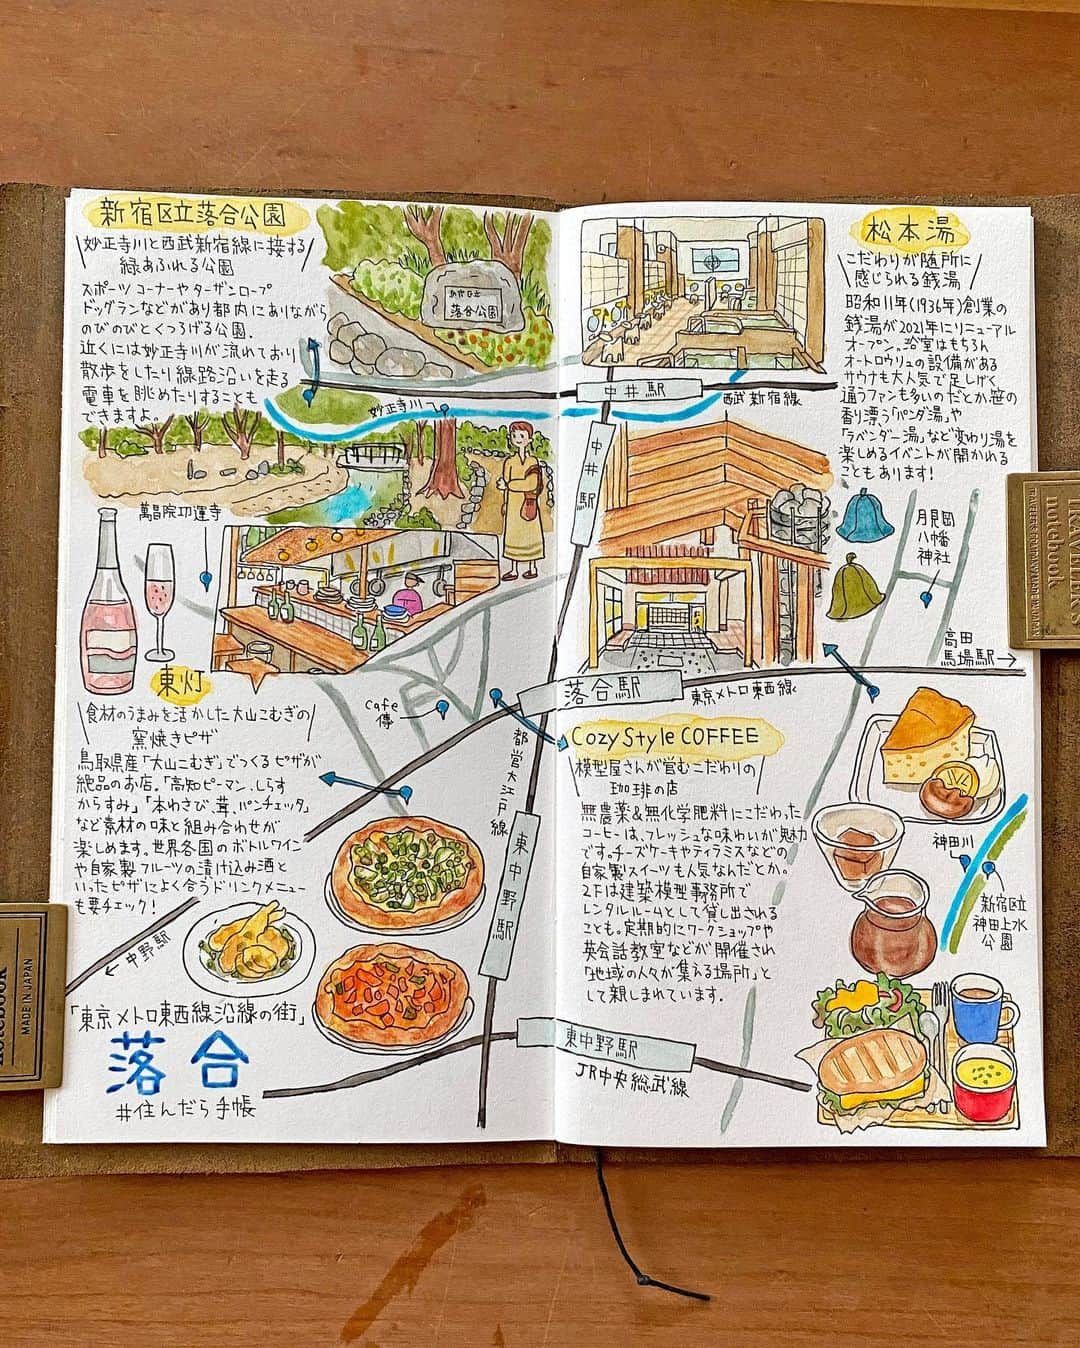 新宿区立落合公園
妙正寺川と西武新宿線に接する
緑あふれる公園
スポーツコーナーやターザンロープ
ドッグランなどがあり都内にありながら
のびのびとくつろげる公園.
近くには妙正寺川が流れており
散歩をしたり線路沿いを走る
電車を眺めたりすることも
できますよ。
新宿区立
落合公園
妙正寺川
萬昌院功運寺
東灯
食材のうまみを活かした大山こむぎの
窯焼きピザ
鳥取県産「大山こむぎ」でつくるピザが
絶品のお店。「高知ピーマン、しらす
からすみ」「本わさび、茸、パンチェッタ」
など素材の味と組み合わせが
楽しめます。世界各国のボトルワイン
や自家製フルーツの漬け込み酒と
いったピザによく合うドリンクメニュー
も要チェック!
cafe
傳
←中野駅
「東京メトロ東西線沿線の街」
落合
#住んだら手帳
都営大江戸線
東中野駅
松本湯
こだわりが随所に
感じられる銭湯
昭和11年(1936年)創業の
銭湯が2021年にリニューアル
オープン。浴室はもちろん
オートロウリュの設備がある
サウナも大人気で足しげく
通うファンも多いのだとか。笹の
香り漂う「パンダ湯」や
「ラベンダー湯」など変わり湯を
楽しめるイベントが開かれる
こともあります!
中井駅
西武新宿線
中井駅
月見岡
八幡
神社
高田
馬場駅→
落合駅
東京メトロ東西線
Cozy Style COFFEE
模型屋さんが営むこだわりの
珈琲の店
無農薬&無化学肥料にこだわった
コーヒーは、フレッシュな味わいが魅力
です。チーズケーキやティラミスなどの
自家製スイーツも人気なんだとか。
2Fは建築模型事務所で
レンタルルームとして貸し出される
ことも。定期的にワークショップや
英会話教室などが開催され
「地域の人々が集える場所」と
して親しまれています.
神田川
新宿区立
神田上水
公園
東中野駅
JR中央総武線
TRAVELER'S
notebook
TRAVELER'S COMPANY JAPAN
notebook
MADE IN JAPAN